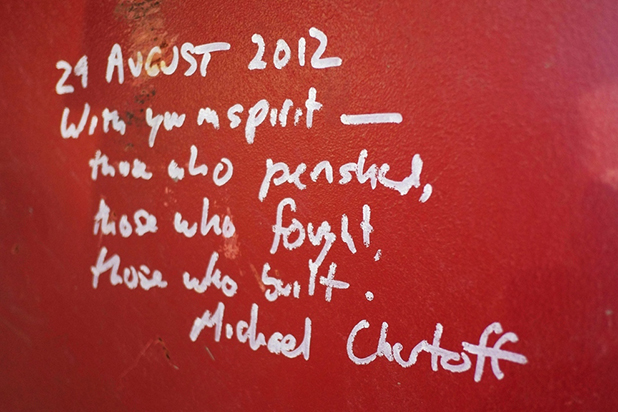 29 AUGUST 2012
With you in spirit —
those who perished,
those who fought,
those who built.
Michael Chertoff